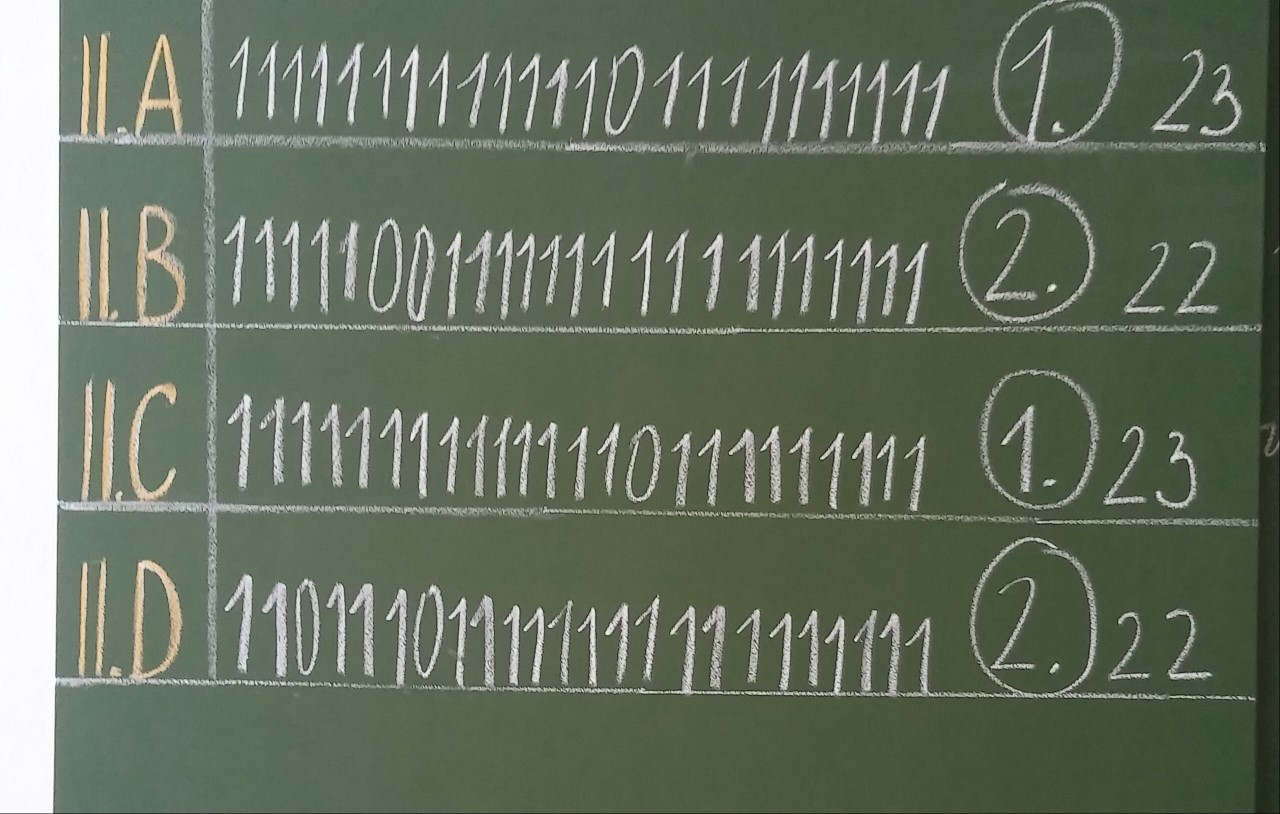 II.A 111111111111101111111111 1. 23
II.B 111110011111111111111111 2. 22
II.C 111111111111110111111111 1. 23
II.D 110111011111111111111111 2. 22